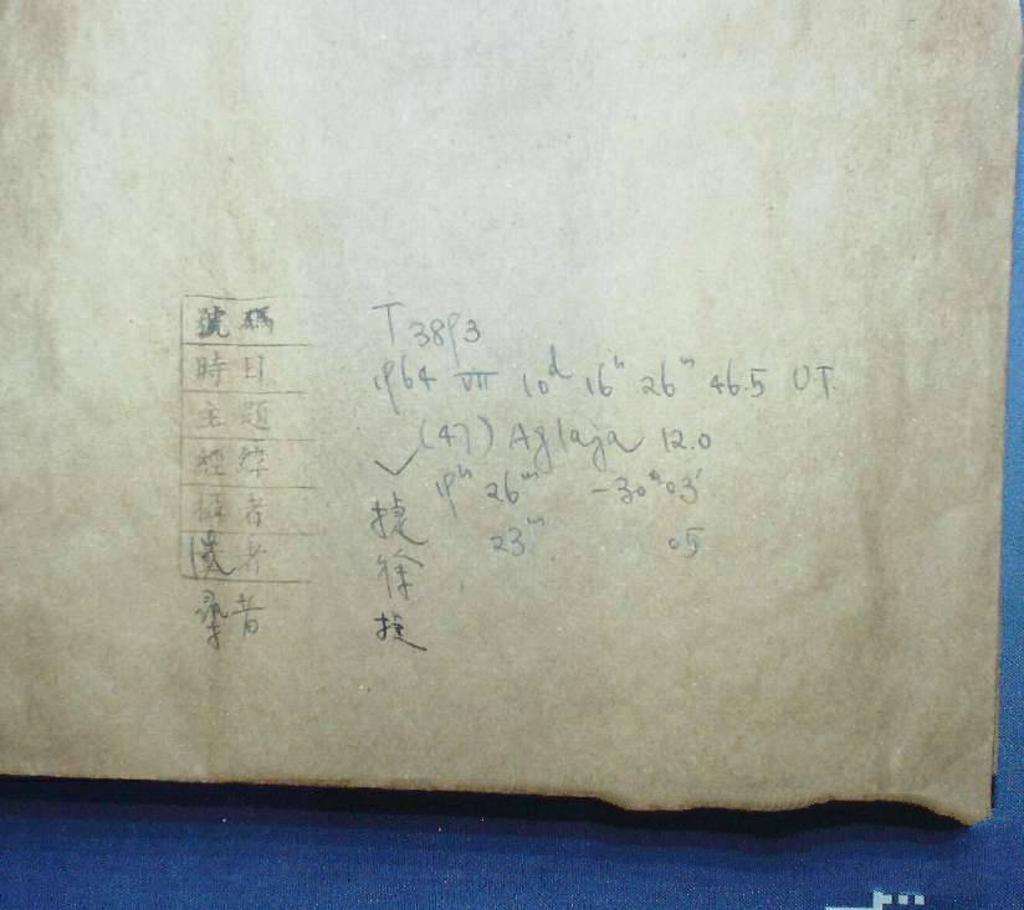 號碼 T3893
時日 1964 VII 10ᵈ 16ʰ 26ᵐ 46.5 U.T.
主題 (47) Aglaja 12.0
經緯 ✓ 19ʰ 26ᵐ -30°03′
者 捷 23ᵐ 05
者 徐
者 捷